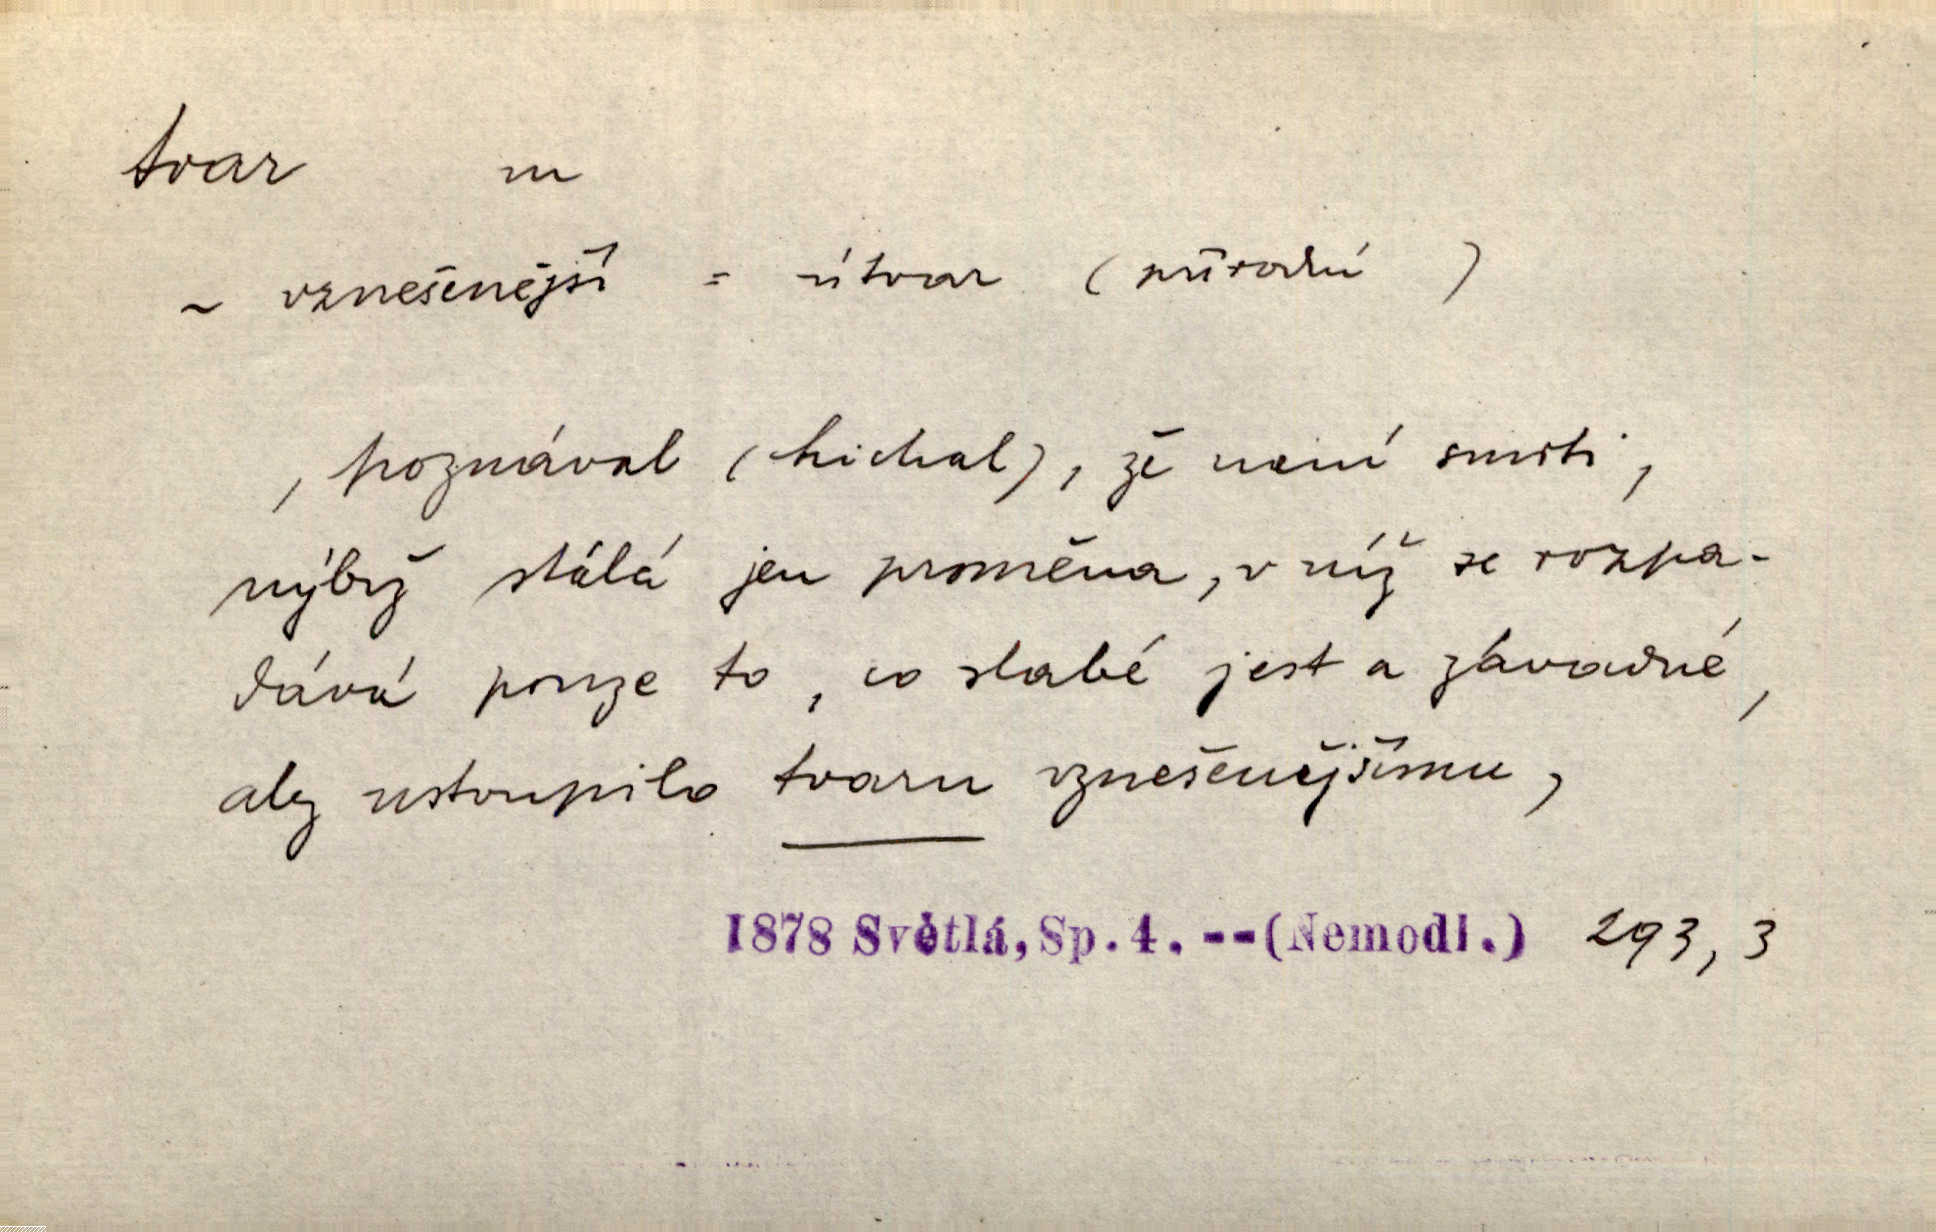 tvar m
~ vznešenější = útvar (přírodní )
, poznával (Michal), že není smrti,
nýbrž stálá jen proměna, v níž se rozpa-
dává pouze to, co slabé jest a závadné,
aby ustoupilo tvaru vznešenějšímu,
1878 Světlá, Sp. 4. -- (Nemodl.) 293, 3